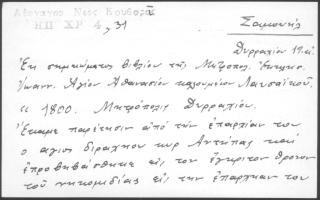 Αθηναγος Νεος Κουβαρᾶς
ΗΠ ΧΡ 4, 31
Σαμουήλ
Δυρραχίου
Ἐκ σημειώματος βιβλίου τῆς Μητροπόλ.
Ἰωανν. Ἁγίου Ἀθανασίου καλουμένου Λαυσαϊκοῦ.
" 1800. Μητρόπολις Δυρραχίου.
Ἔκαμε παρέτησιν ἀπὸ τὴν ἐπαρχίαν του
ὁ ἅγιος διραχίου κυρ Ἀντύπας καὶ
ἐπροβηβάσθηκε εἰς τον ἔγκριτον θρόνον
τοῦ νηκομιδίας εἰς τὴν ἐπαρχίαν του